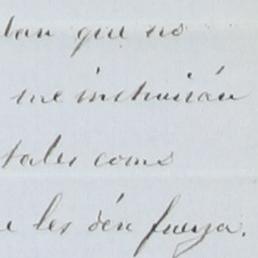 ban que no
me instruirán
tales como
e les dén fuerza.